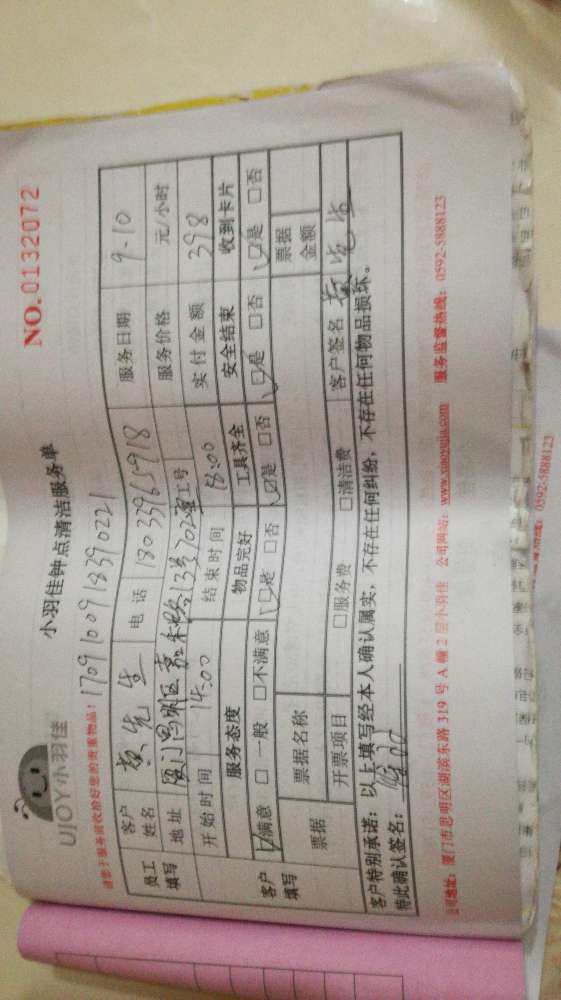 UJOY小羽佳
小羽佳钟点清洁服务单
NO.0132072
请您于服务前收拾好您的贵重物品！
1709100918390221
员工填写
客户姓名 黄先生 电话 18039965918 服务日期 9-10
地址 厦门思明区嘉禾路 3号702室 工号 服务价格 元/小时
开始时间 14:00 结束时间 18:00 实付金额 398
客户填写
服务态度 物品完好 工具齐全 安全结束 收到卡片
满意 □一般 □不满意 □是 □否 □是 □否 □是 □否 □是 □否
票据 票据名称 票据金额
开票项目 □服务费 □清洁费 客户签名 黄先生
客户特别承诺：以上填写经本人确认属实，不存在任何纠纷，不存在任何物品损坏。
特此确认签名：
公司地址：厦门市思明区湖滨东路 319 号 A 幢 2 层小羽佳 公司网站：www.xiaoyujia.com 服务监督热线：0592-5888123
0592-5888123